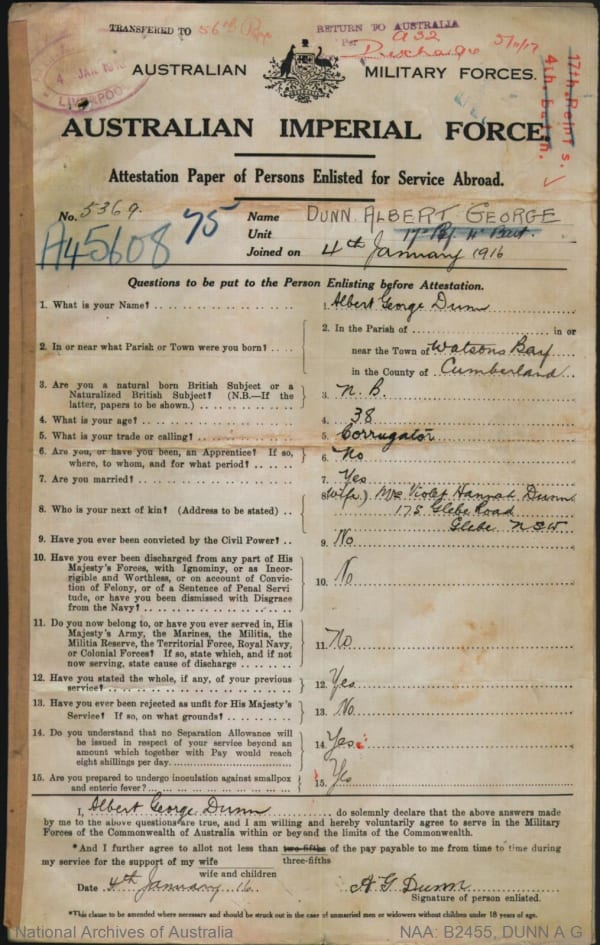 TRANSFERRED TO 56th
RETURN TO AUSTRALIA
Per A32
Discharge 5/11/17
4 JAN 1916
LIVERPOOL
AUSTRALIAN MILITARY FORCES.
17th. Reinf's.
4th. Battn.
AUSTRALIAN IMPERIAL FORCE.
Attestation Paper of Persons Enlisted for Service Abroad.
No. 5369. 75
A45608
Name DUNN ALBERT GEORGE
Unit
Joined on 4th January 1916
Questions to be put to the Person Enlisting before Attestation.
1. What is your Name? .... 1. Albert George Dunn
2. In or near what Parish or Town were you born? .... 2. In the Parish of .... in or
near the Town of Watsons Bay
in the County of Cumberland
3. Are you a natural born British Subject or a
Naturalized British Subject? (N.B.—If the
latter, papers to be shown.) .... 3. N.B.
4. What is your age? .... 4. 38
5. What is your trade or calling? .... 5. Corrugator
6. Are you, or have you been, an Apprentice? If so,
where, to whom, and for what period? .... 6. No
7. Are you married? .... 7. Yes
8. Who is your next of kin? (Address to be stated) .. 8. (Wife) Mrs Violet Hannah Dunn
175 Glebe Road
Glebe NSW
9. Have you ever been convicted by the Civil Power? .. 9. No
10. Have you ever been discharged from any part of His
Majesty's Forces, with Ignominy, or as Incor-
rigible and Worthless, or on account of Convic-
tion of Felony, or of a Sentence of Penal Servi
tude, or have you been dismissed with Disgrace
from the Navy? .... 10. No
11. Do you now belong to, or have you ever served in, His
Majesty's Army, the Marines, the Militia, the
Militia Reserve, the Territorial Force, Royal Navy,
or Colonial Forces? If so, state which, and if not
now serving, state cause of discharge .... 11. No
12. Have you stated the whole, if any, of your previous
service? .... 12. Yes
13. Have you ever been rejected as unfit for His Majesty's
Service? If so, on what grounds? .... 13. No
14. Do you understand that no Separation Allowance will
be issued in respect of your service beyond an
amount which together with Pay would reach
eight shillings per day. .... 14. Yes
15. Are you prepared to undergo inoculation against smallpox
and enteric fever? .... 15. Yes
I, Albert George Dunn do solemnly declare that the above answers made
by me to the above questions are true, and I am willing and hereby voluntarily agree to serve in the Military
Forces of the Commonwealth of Australia within or beyond the limits of the Commonwealth.
*And I further agree to allot not less than two-fifths of the pay payable to me from time to time during
three-fifths
my service for the support of my wife
wife and children
Date 4th January 16. A G Dunn
Signature of person enlisted.
*This clause to be amended where necessary and should be struck out in the case of unmarried men or widowers without children under 18 years of age.
National Archives of Australia NAA: B2455, DUNN A G